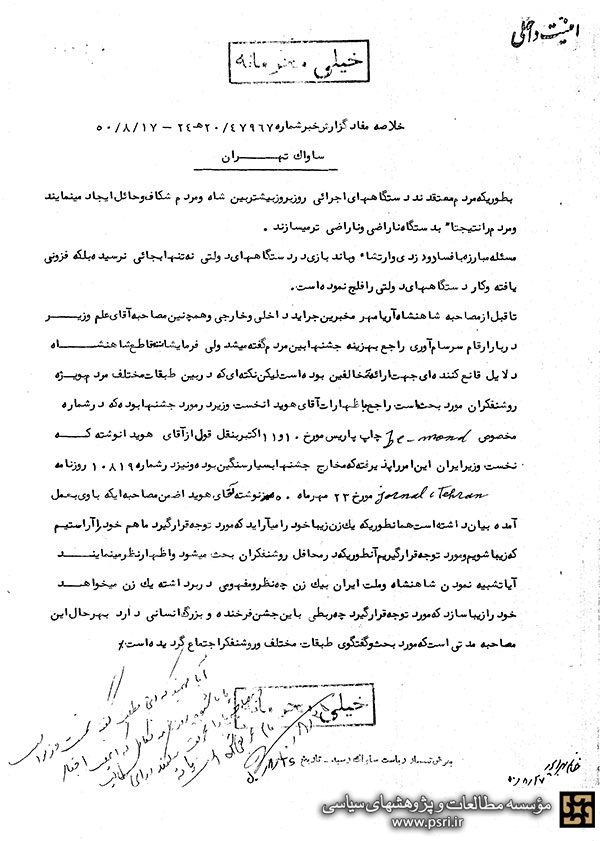 امنیت داخلی
خیلی محرمانه
خلاصه مفاد گزارش خبر شماره ۲۰/۴۷۹۶۷هـ۲۴ – ۵۰/۸/۱۷
ساواك تهـــران
بطوریکه مردم معتقدند دستگاههای اجرائی روزبروز بیشتر بین شاه و مردم شکاف و حائل ایجاد مینمایند
و مردم را نتیجتا" بدستگاه ناراضی و ناراضی تر میسازند .
مسئله مبارزه با فساد و دزدی و ارتشاء و باند بازی در دستگاههای دولتی نه تنها بجائی نرسیده بلکه فزونی
یافته و کار دستگاههای دولتی را فلج نموده است.
تا قبل از مصاحبه شاهنشاه آریامهر مخبرین جراید داخلی و خارجی و همچنین مصاحبه آقای علم وزیر
دربار ارقام سرسام آوری راجع بهزینه جشنها بین مردم گفته میشد ولی فرمایشات قاطع شاهنشاه
دلایل قانع کننده ای جهت ارائه بمخالفین بوده است لیکن نکته ای که در بین طبقات مختلف مردم بویژه
روشنفکران مورد بحث است راجع باظهارات آقای هویدا نخست وزیر در مورد جشنها بوده که در شماره
مخصوص Le-mond چاپ پاریس مورخ ۱۰ و ۱۱ اکتبر بنقل قول از آقای هویدا نوشته که
نخست وزیر ایران این امر را پذیرفته که مخارج جشنها بسیار سنگین بوده و نیز در شماره ۱۰۸۱۹ روزنامه
jornal c Tehran مورخ ۲۳ مهرماه ۵۰ نوشته آقای هویدا ضمن مصاحبه ایکه با وی بعمل
آمده بیان داشته است همانطوریکه یك زن زیبا خود را میآراید که مورد توجه قرار گیرد ما هم خود را آراستیم
که زیبا شویم و مورد توجه قرار گیریم آنطوریکه در محافل روشنفکران بحث میشود و اظهار نظر مینمایند
آیا تشبیه نمودن شاهنشاه و ملت ایران بیك زن چه نظر و مفهومی در بر داشته یك زن میخواهد
خود را زیبا سازد که مورد توجه قرار گیرد چه ربطی باین جشن فرخنده و بزرگ انسانی دارد بهر حال این
مصاحبه مدتی است که مورد بحث و گفتگوی طبقات مختلف و روشنفکر اجتماع گردیده است٪
خیلی محرمانه
بعرض تیمسار ریاست ساواك رسید – تاریخ
مؤسسه مطالعات و پژوهشهای سیاسی
www.psri.ir